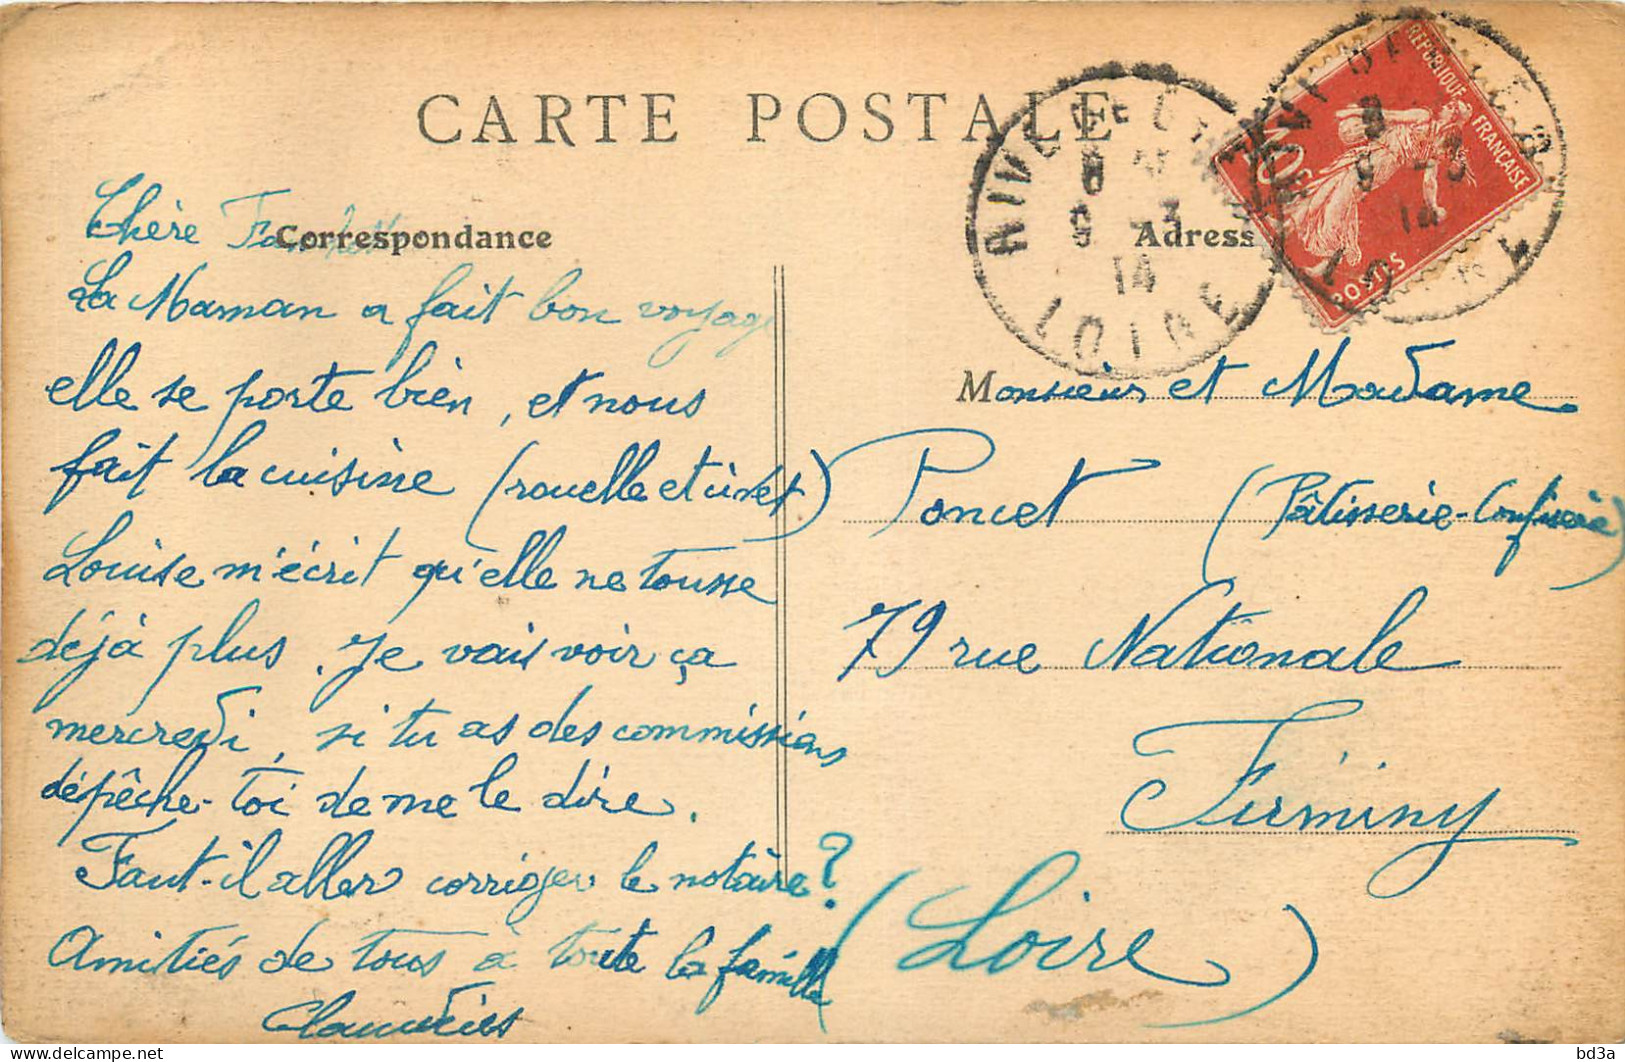 CARTE POSTALE
Correspondance
Chère
La Maman a fait bon voyage
elle se porte bien, et nous
fait la cuisine (rouelle et civet)
Louise m'écrit qu'elle ne tousse
déjà plus. Je vais voir ça
mercredi, si tu as des commissions
dépêche-toi de me le dire.
Faut-il aller corriger le notaire?
Amitiés de tous à toute la famille
Claudius
Adress
RIVE DE
8
9 - 3
14
LOIRE
REPUBLIQUE FRANÇAISE
10
POSTES
9 - 3
14
Monsieur et Madame
Poncet (Pâtisserie-Confiserie)
79 rue Nationale
Firminy
(Loire)
delcampe.net
bd3a